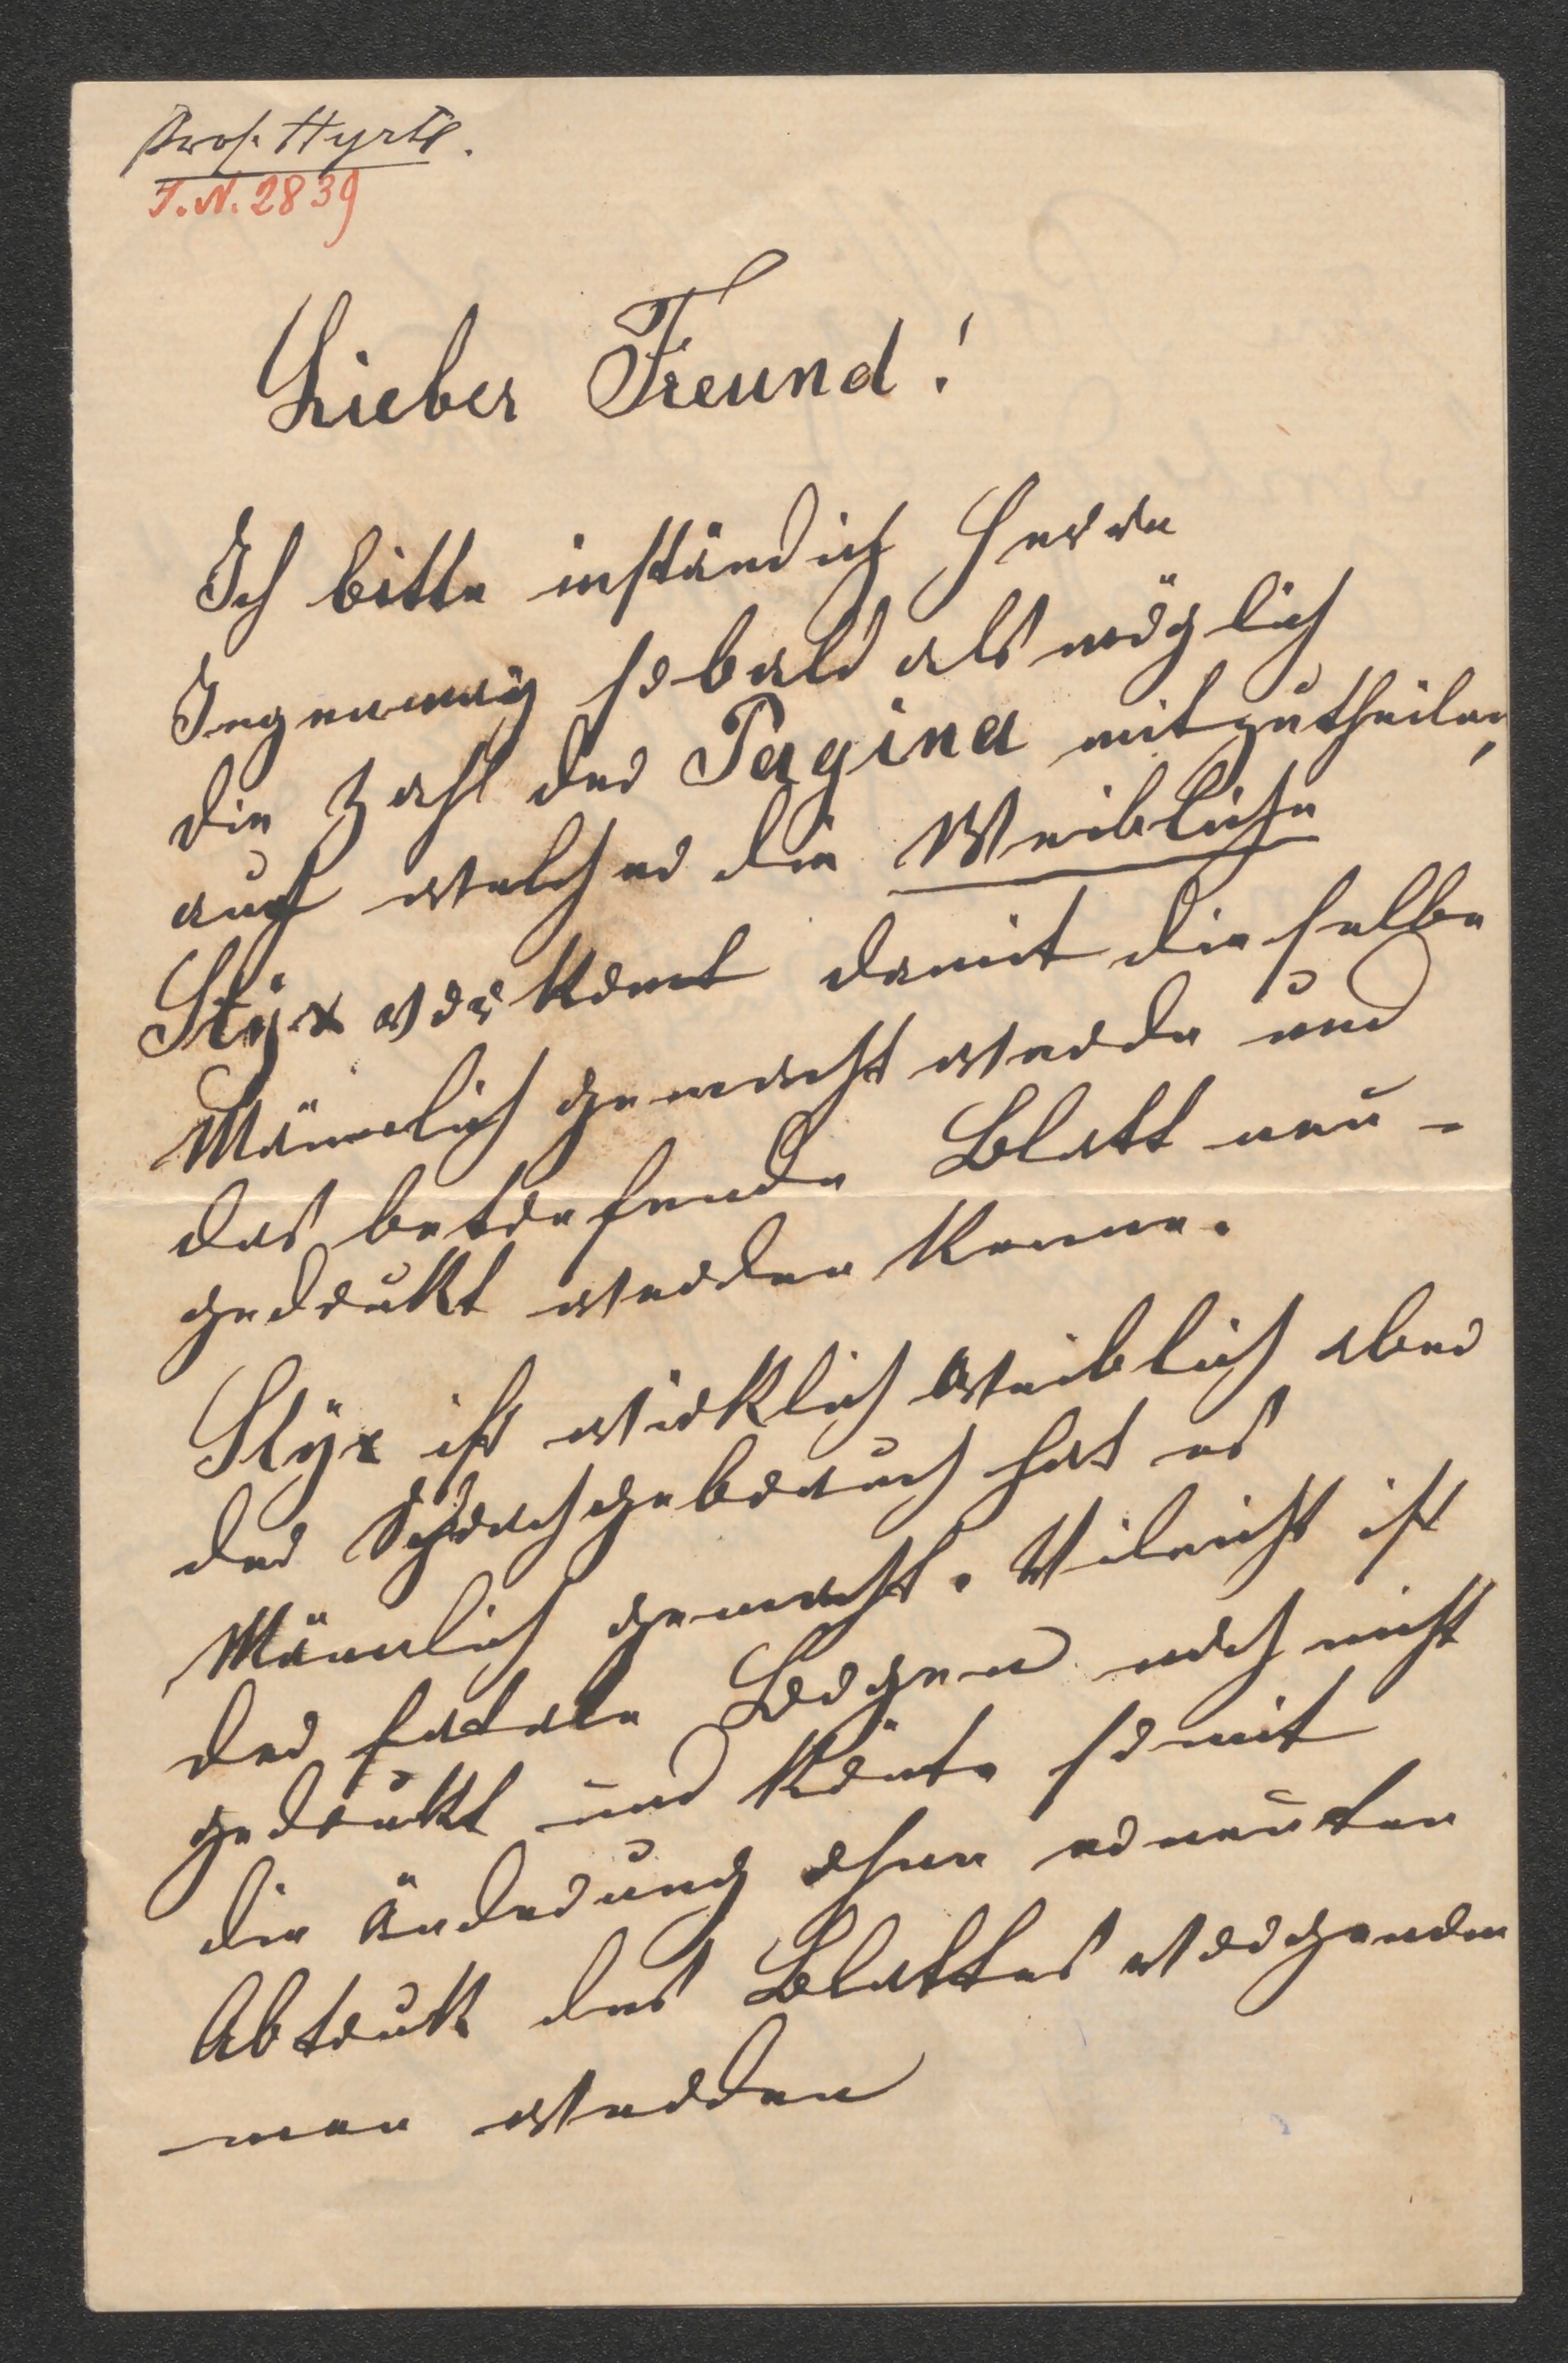 Prof. Hyrtl.
I.N. 2839
Lieber Freund!
Ich bitte inständich Herrn
sobald als möglich
die Zahl der Pagina mitzutheilen,
auf welcher die Weibliche
Styx vorkomt damit dieselbe
Männlich gemacht werde und
das betrefende Blatt neu-
gedrukt werden kenne.
Styx ist wirklich weiblich aber
der Sprachgebrauch hat es
Männlich gemacht. Vileicht ist
der fatale Bogen noch nicht
gedrukt und könte somit
die Änderung ohne erneuten
Abtruk des Blattes vorgenom
men werden